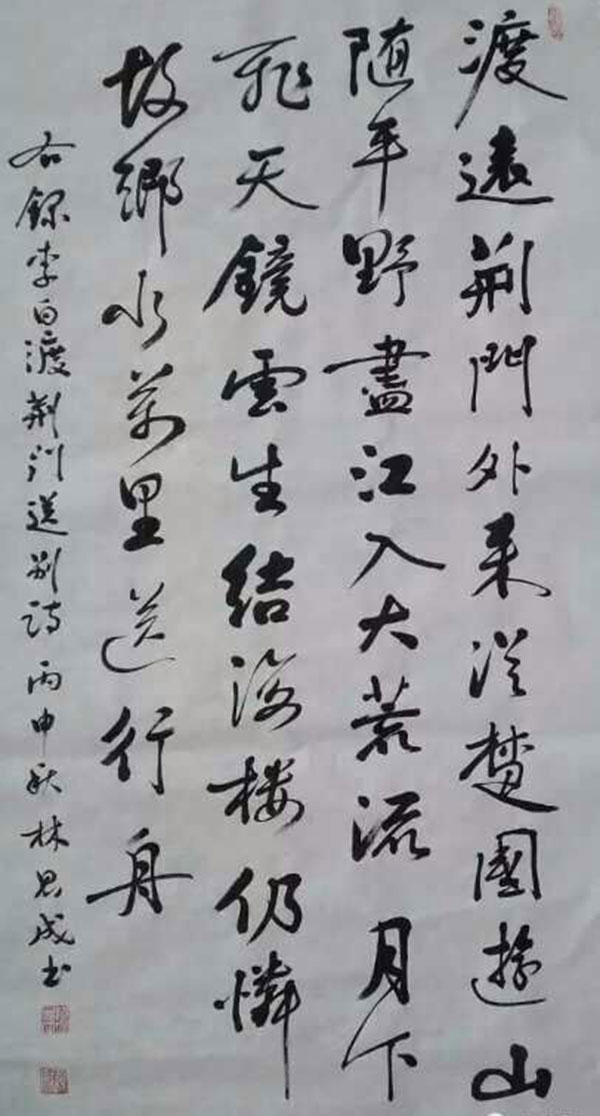 渡遠荆門外来従楚國遊山
随平野盡江入大荒流月下
飛天鏡雲生結海楼仍憐
故鄉水萬里送行舟
右録李白渡荆门送别诗丙申秋林思成书